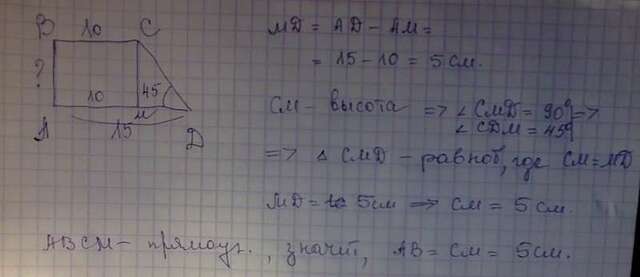 B 10 C
?
10 45
A M D
15
MD = AD - AM =
= 15 - 10 = 5 см.
CM - высота => ∠CMD = 90°} =>
∠CDM = 45°}
=> △ CMD - равноб, где CM = MD
MD = 5 см => CM = 5 см.
ABCM - прямоуг., значит, AB = CM = 5 см.